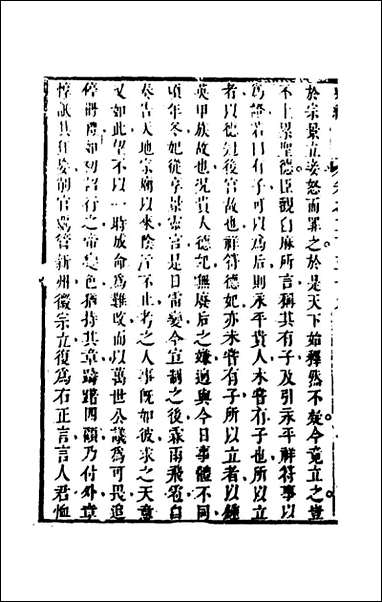 於宗景立妾怒而罪之於是天下始釋然不疑今竟立之豈
不上累聖德臣觀白麻所言稱其有子及引永平祥符事以
為證若曰有子可以為后則永平貴人未嘗有子也所以立
者以德冠後宮故也祥符德妃亦未嘗有子所以立者以鍾
英甲族故也況貴人德妃無廢后之嫌迥與今日事體不同
頃年冬妃從享景靈宮是日雷變今宣制之後霖雨飛雹自
奏告天地宗廟以來陰淫不止考之人事既如彼求之天意
又如此望不以一時成命為難改而以萬世公議為可畏追
停冊禮如初詔行之帝變色猶持其章躊躇四顧乃付外章
惇詆其狂妄削官羈管新州徽宗立復為右正言言人君恤